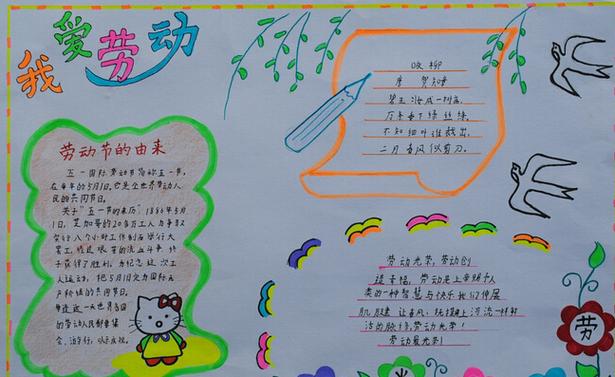 我爱劳动
劳动节的由来
五一国际劳动节简称五一节，
在每年的5月1日。它是全世界劳动人
民的共同节日。
关于“五一节的来历”1886年5月
1日，芝加哥的20多万工人为争取
实行八小时工作制而举行大
罢工，经过艰苦的流血斗争，终
于获得了胜利。为纪念这次工
人运动，把5月1日定为国际无
产阶级的共同节日。
每逢这一天世界各国
的劳动人民都要集
会、游行，以示庆祝。
咏柳
唐 贺知章
碧玉妆成一树高，
万条垂下绿丝绦。
不知细叶谁裁出，
二月春风似剪刀。
劳动光荣，劳动的
适幸福，劳动是上帝赐予人
类的一种智慧与快乐我们伸展
肌肤，让春风，抚摸掌上河流一样鲜
活的脉络，劳动光荣！
劳动最光荣！
劳